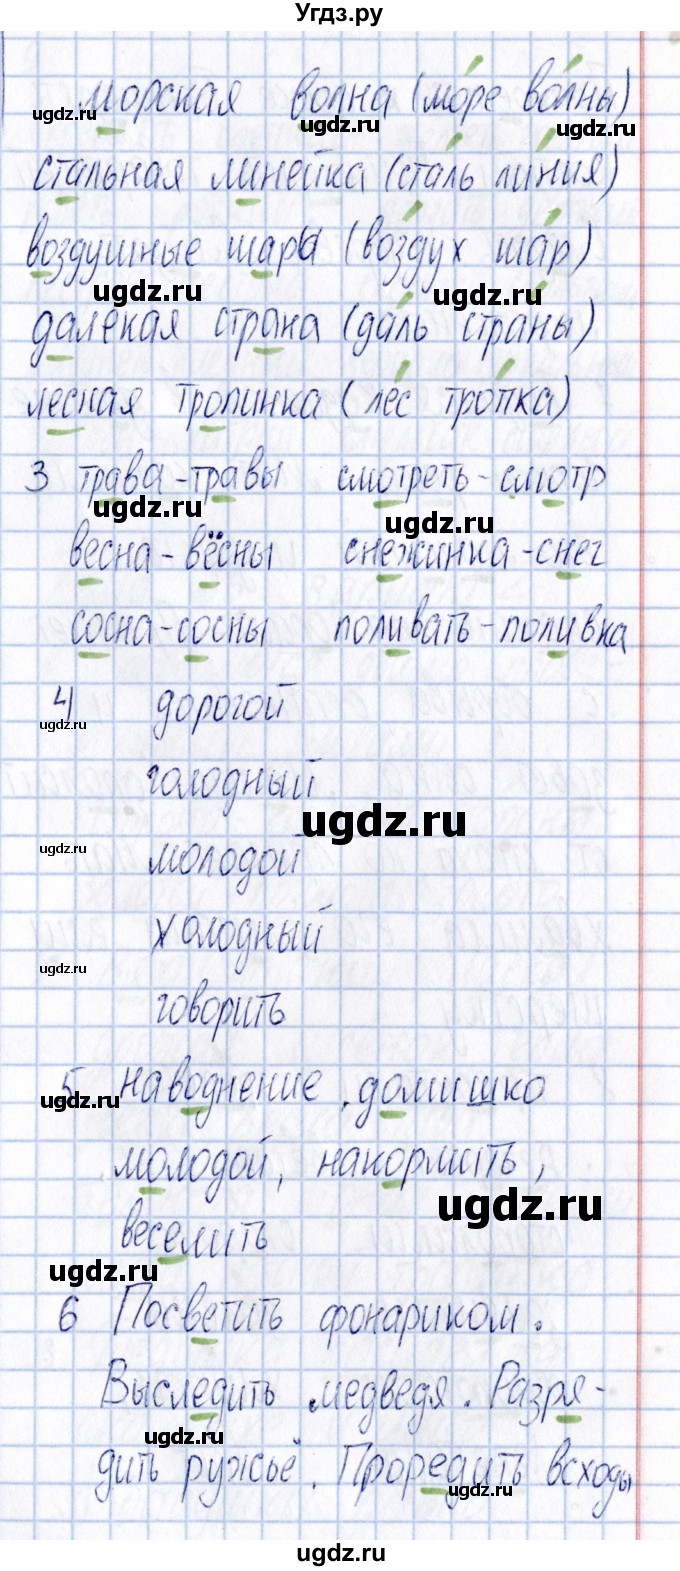 Угдз.ру
морская волна (море волны)
ugdz.ru ugdz.ru ugdz.ru
стальная линейка (сталь линия)
воздушные шары (воздух шар)
ugdz.ru ugdz.ru
далекая страна (даль страны)
лесная тропинка (лес тропка)
3 трава-травы смотреть-смотр
ugdz.ru ugdz.ru
весна-вёсны снежинка-снег
сосна-сосны поливать-поливка
4) дорогой
ugdz.ru
голодный
ugdz.ru
молодой
ugdz.ru
холодный
ugdz.ru
говорить
5 наводнение, домишко
ugdz.ru
молодой, накормить,
ugdz.ru
веселить
ugdz.ru
6 Посветить фонариком.
Выследить медведя. Разря-
ugdz.ru
дить ружьё. Проредить всходы
ugdz.ru
ugdz.ru